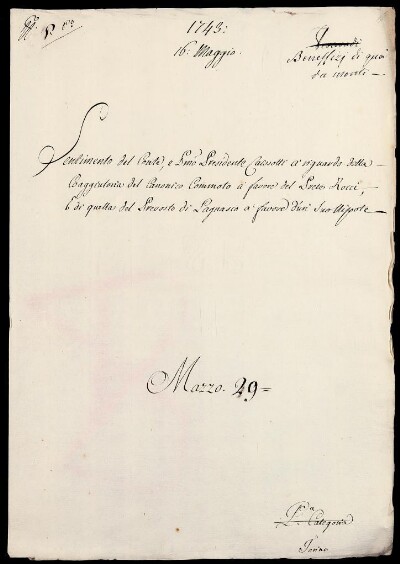 1743:
16: Maggio:
Vescovadi
Beneffizj di quà
da monti
Sentimento del Conte, e Pmo Presidente Caissotti a riguardo della
Coaggiutoria del Canonico Commoto a favore del Prete Rozzi,
E di quella del Prevosto di Lagnasco a favore d'un suo Nipote
Mazzo. 29=
P.a Categoria